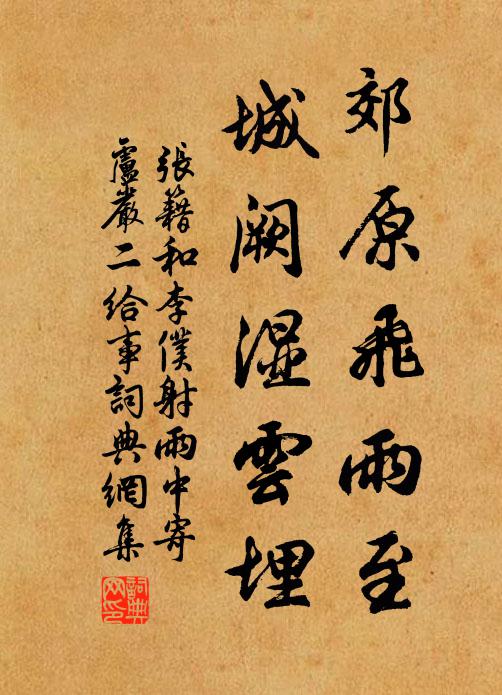 郊原飛雨至
城闕湿雲埋
張籍和李僕射雨中寄
盧嚴二給事詞典網集
詞典
网印